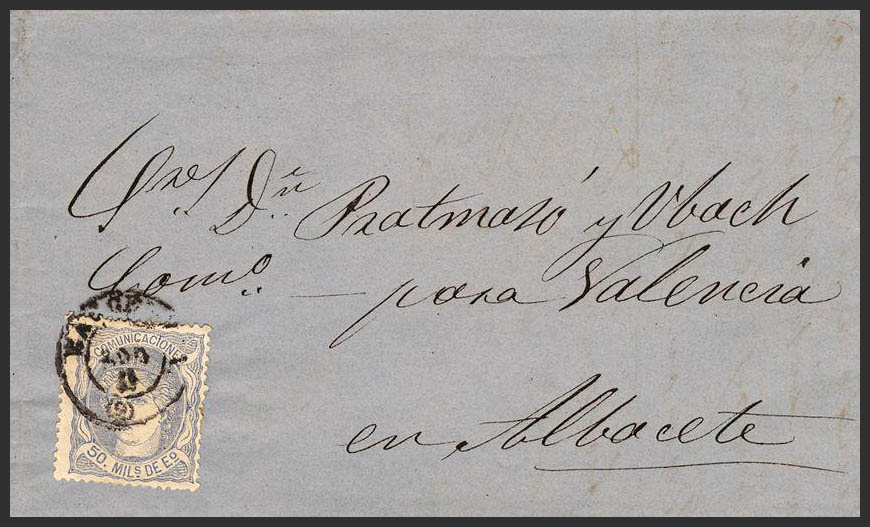 Sres Dn Pratmasó y Ubach
Como. — para Valencia
en Albacete
COMUNICACIONES
50. MILS DE Eo